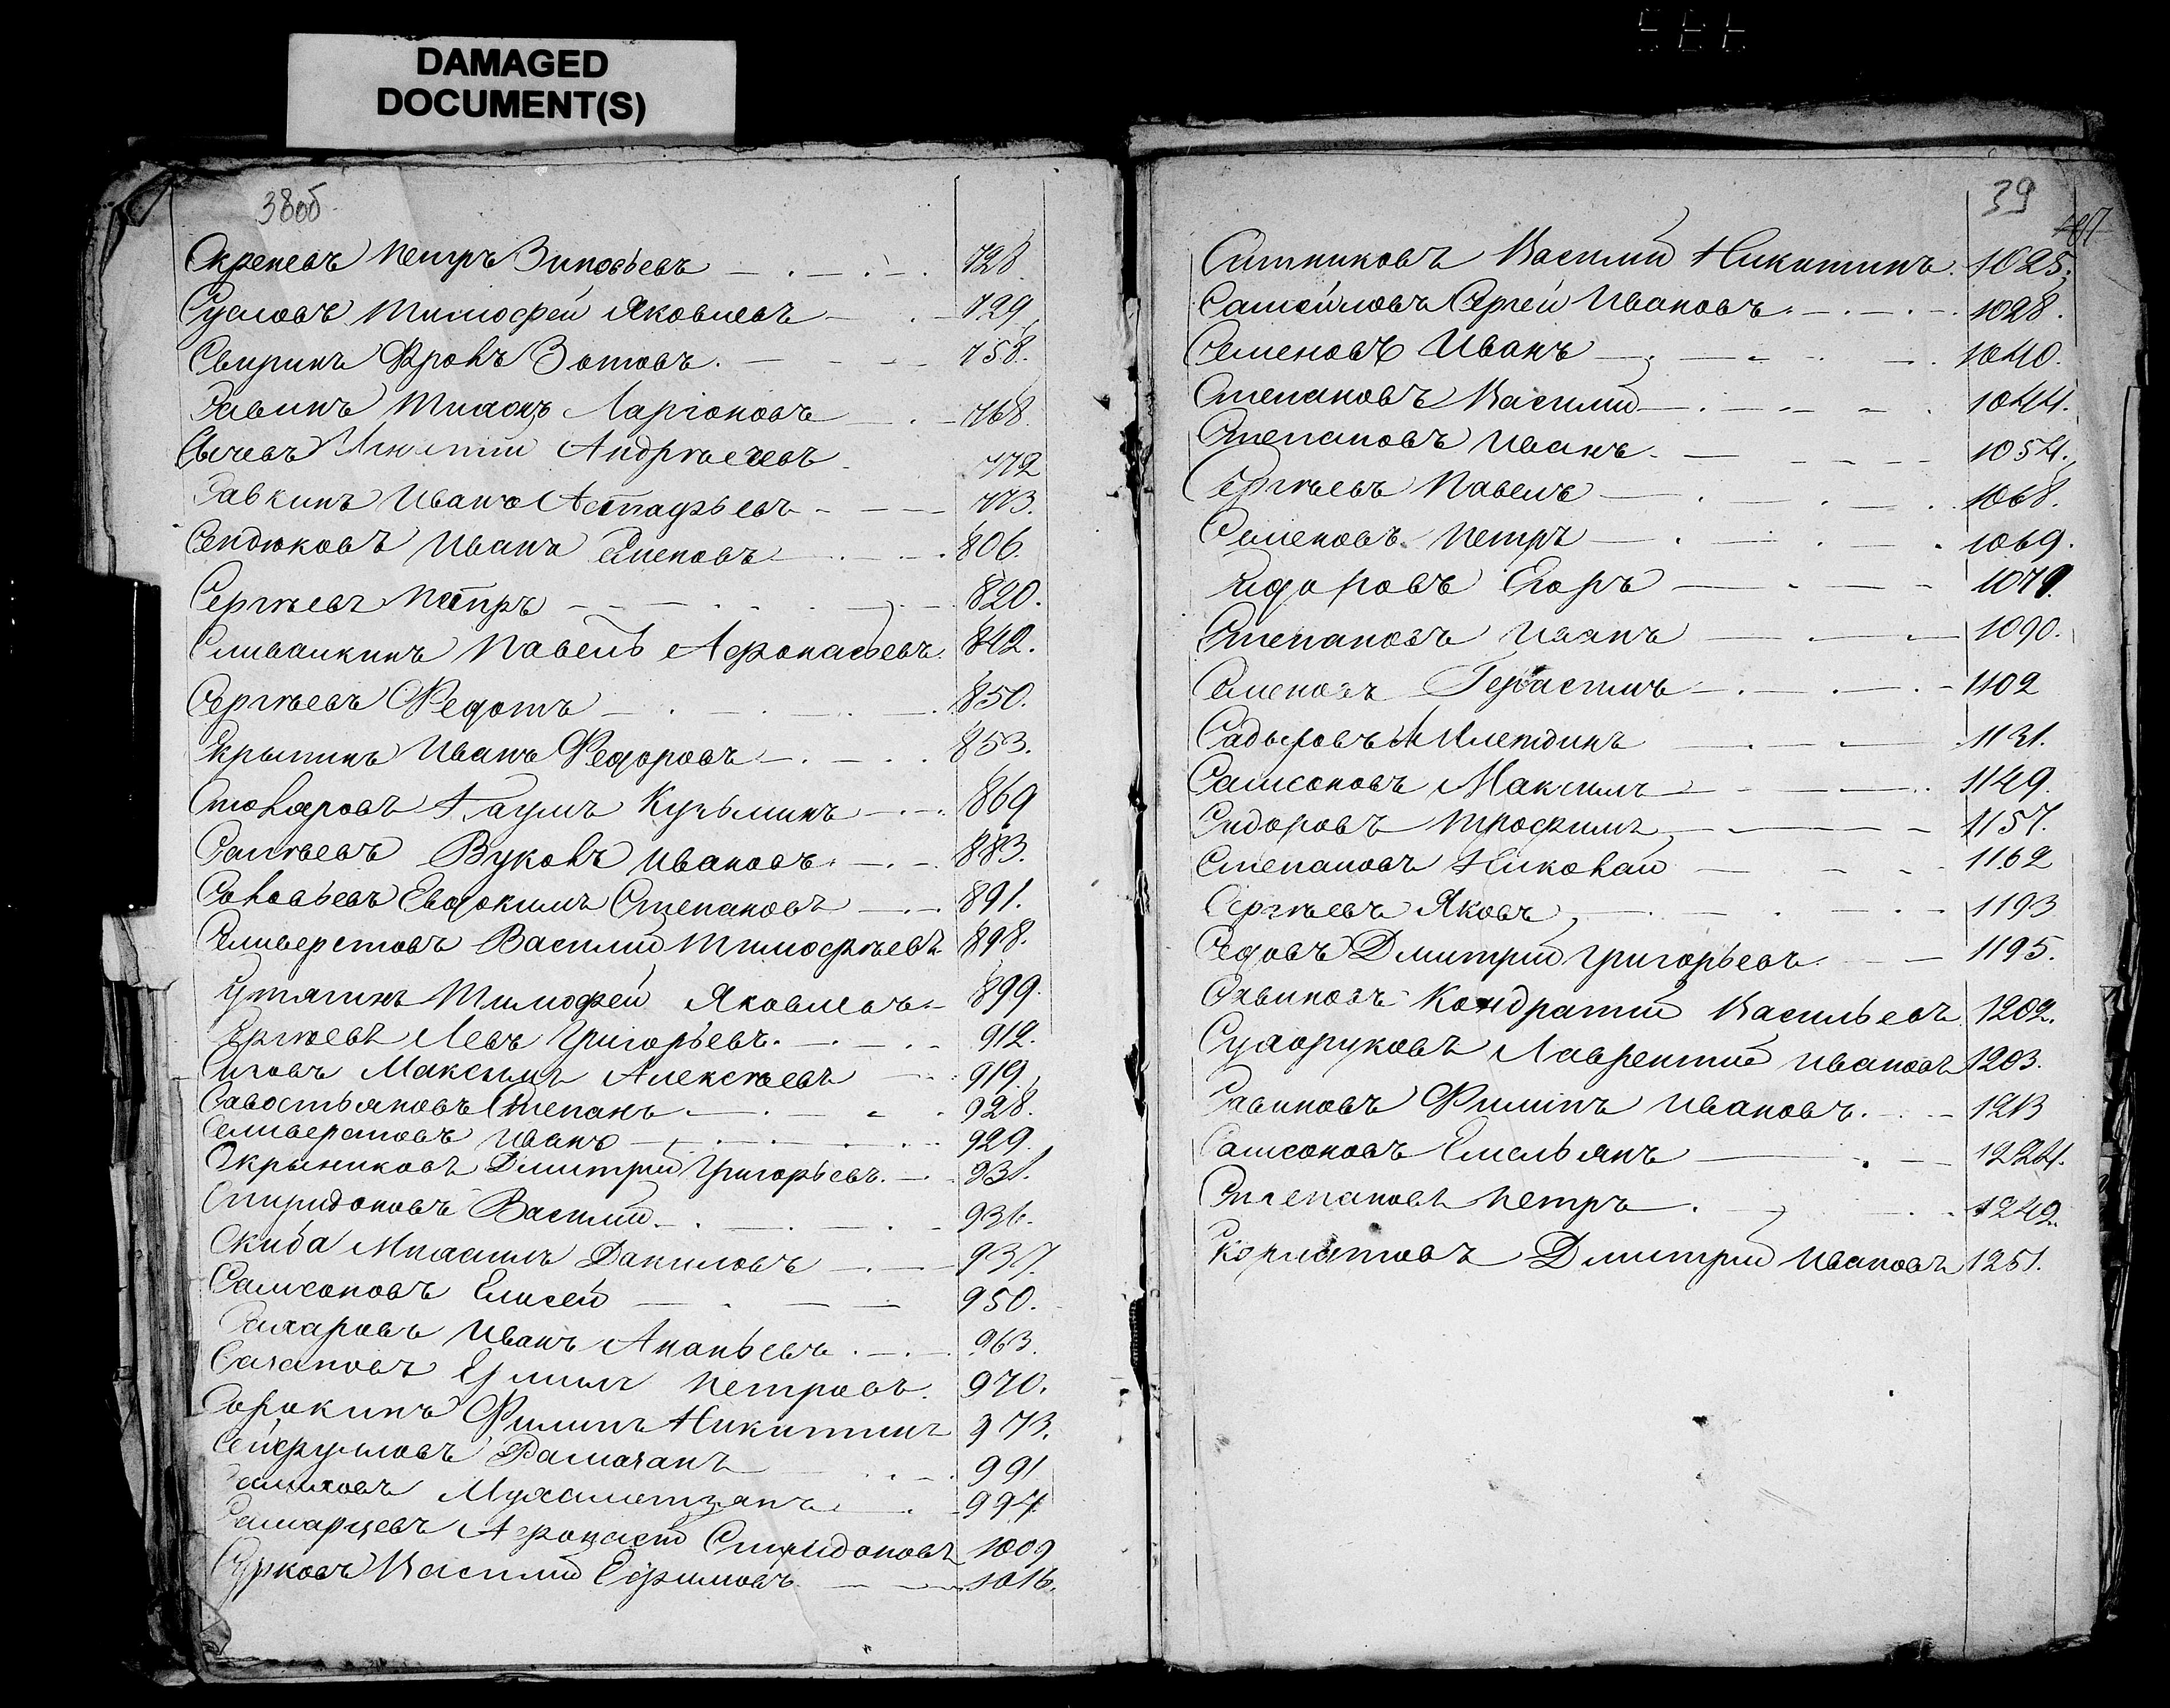 DAMAGED
DOCUMENT(S)
38об
Скрепевъ Петръ Зиновьевъ 728.
Сусловъ Тимофей Яковлевъ 729
Свиринъ Фролъ Зотовъ. 758.
Савинъ Ларіоновъ 768.
Сычевъ Андреевъ 772
Савкинъ Иванъ Астафьевъ 773.
Сендюковъ Иванъ 806.
Сергѣевъ Петръ 820.
Сливанкинъ Павелъ Афонасьевъ 842.
Сергѣевъ Федотъ 850.
Скрыпинъ Иванъ Федоровъ 853.
Столяровъ Наумъ Кузьминъ 869
Вуколъ Ивановъ. 883.
Соловьевъ Евдокимъ Степановъ 891.
Селиверстовъ Василій Тимофѣевъ 898.
Тимофей Яковлевъ 899.
Сергѣевъ Левъ Григорьевъ. 912.
Максимъ Алексѣевъ 919.
Савостьяновъ Степанъ 928.
Селиверстовъ Иванъ 929.
Скрынниковъ Дмитрій Григорьевъ. 931.
Спиридоновъ Василій 936.
Скиба Михаилъ Даниловъ 937.
Самсоновъ Елисей 950.
Сахаровъ Иванъ Ананьевъ 963.
Сазановъ Петровъ. 970.
Сорокинъ Филипъ Никитинъ 973.
Сейфуловъ Рамазанъ 991
Салиховъ Мухаметзянъ 994.
Самарцевъ Афонасій Спиридоновъ 1009
Сурковъ Василій Ефимовъ 1016.
39
Ситниковъ Василій Никитинъ. 1025.
Самойловъ Сергей Ивановъ. 1028.
Семеновъ Иванъ 1040.
Степановъ Василій 1044.
Степановъ Иванъ 1054.
Сергѣевъ Павелъ 1068.
Семеновъ Петръ 1069.
Сидоровъ Егоръ 1079.
Степановъ Иванъ 1090.
Семеновъ Герасимъ 1102
Садыровъ 1131.
Самсоновъ Максимъ 1149.
Сидоровъ Трофимъ 1157.
Степановъ Николай 1162
Сергѣевъ Яковъ 1193
Седовъ Дмитрій Григорьевъ 1195.
Кондратій Васильевъ 1202.
Сухоруковъ Лаврентій Ивановъ 1203.
Савиновъ Филипъ Ивановъ. 1213
Самсоновъ Емельянъ 1224.
Степановъ Петръ 1242.
Дмитрій Ивановъ 1251.